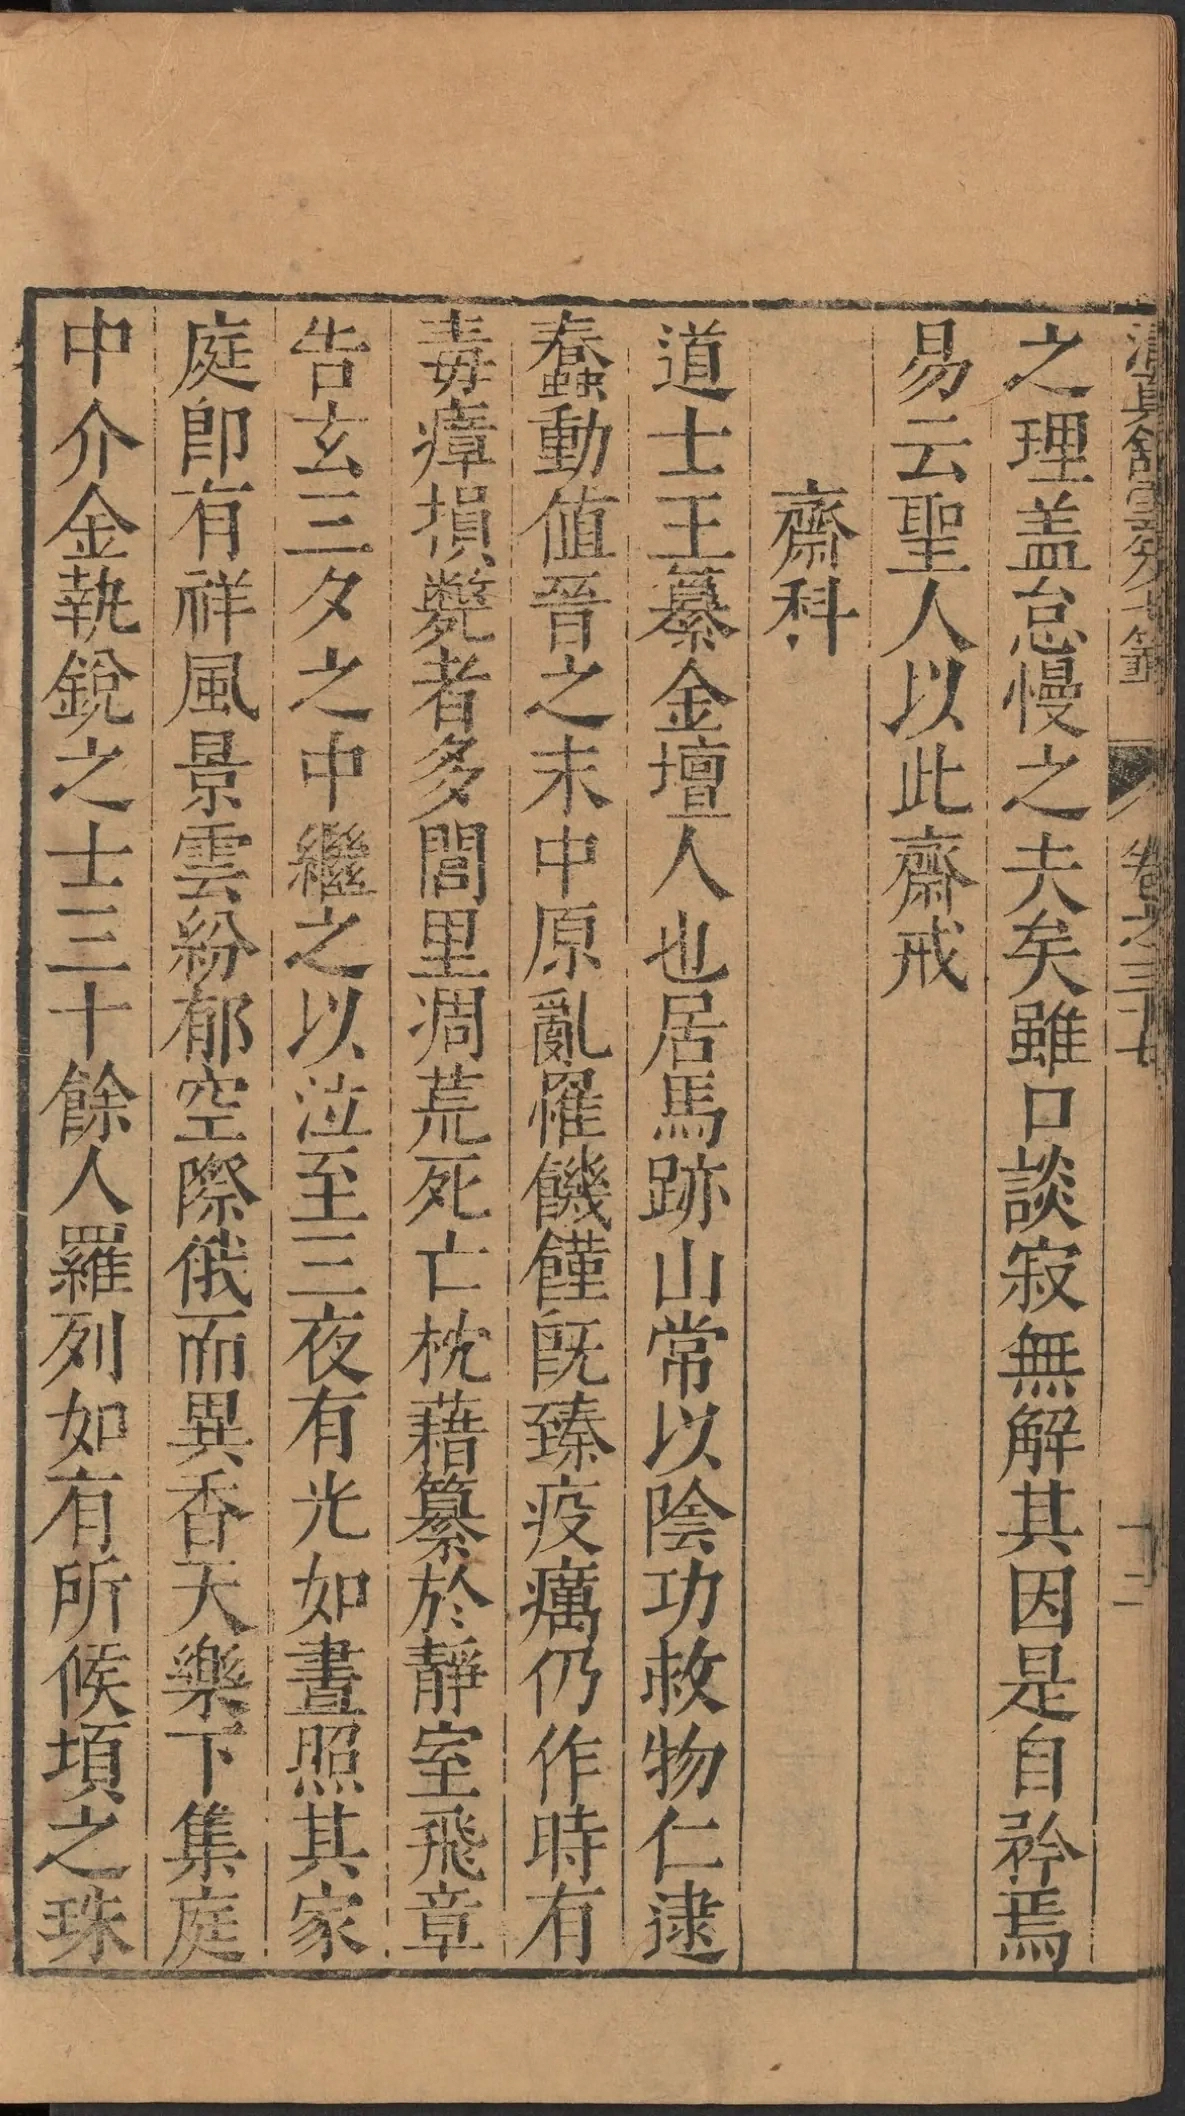 清真館雲笈七籤 卷之三十七 十二
之理盖怠慢之夫矣雖口談寂無解其因是自矜焉
易云聖人以此齋戒
齋科
道士王纂金壇人也居馬跡山常以陰功救物仁逮
蠢動值晉之末中原亂罹饑饉旣臻疫癘仍作時有
毒瘴損斃者多閭里凋荒死亡枕藉纂於靜室飛章
告玄三夕之中繼之以泣至三夜有光如晝照其家
庭卽有祥風景雲紛郁空際俄而異香天樂下集庭
中介金執銳之士三十餘人羅列如有所候頃之珠